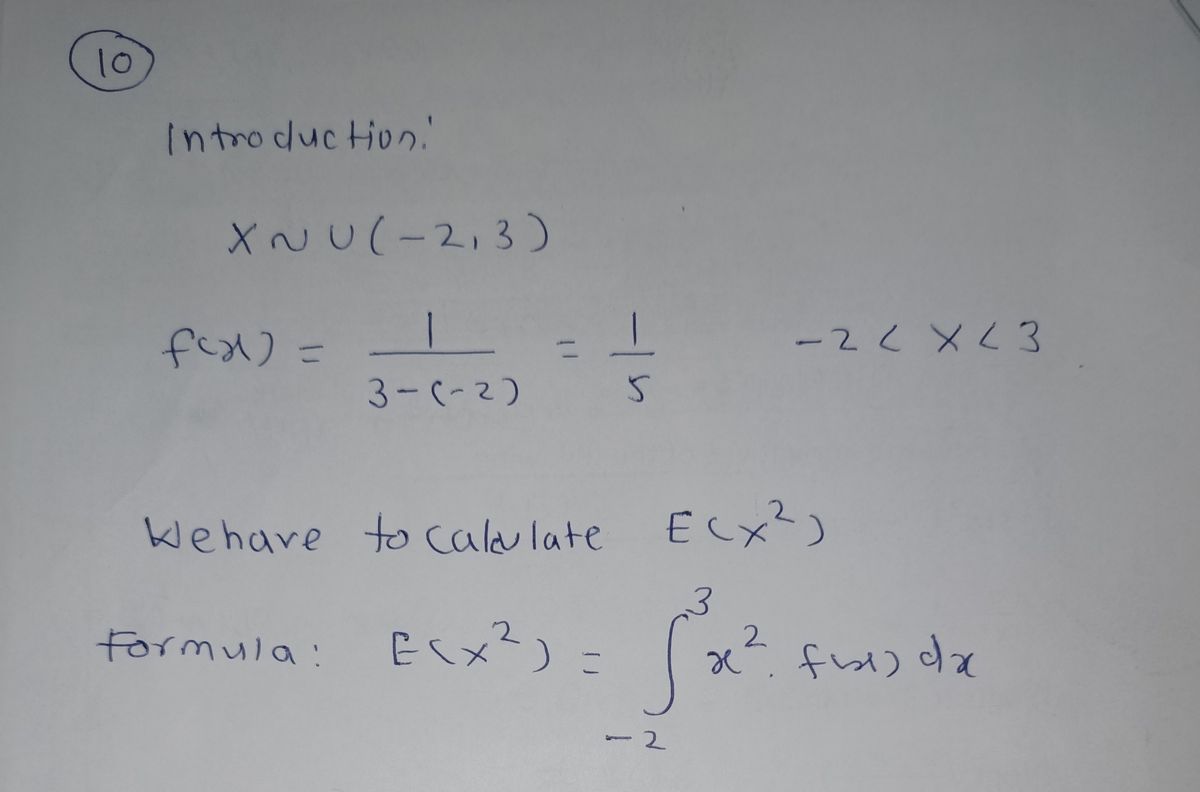 10
Introduction:
X ~ U(-2,3)
f(x) = 1/(3-(-2)) = 1/5 -2 < X < 3
We have to calculate E(x²)
Formula: E(x²) = ∫₋₂³ x². f(x) dx